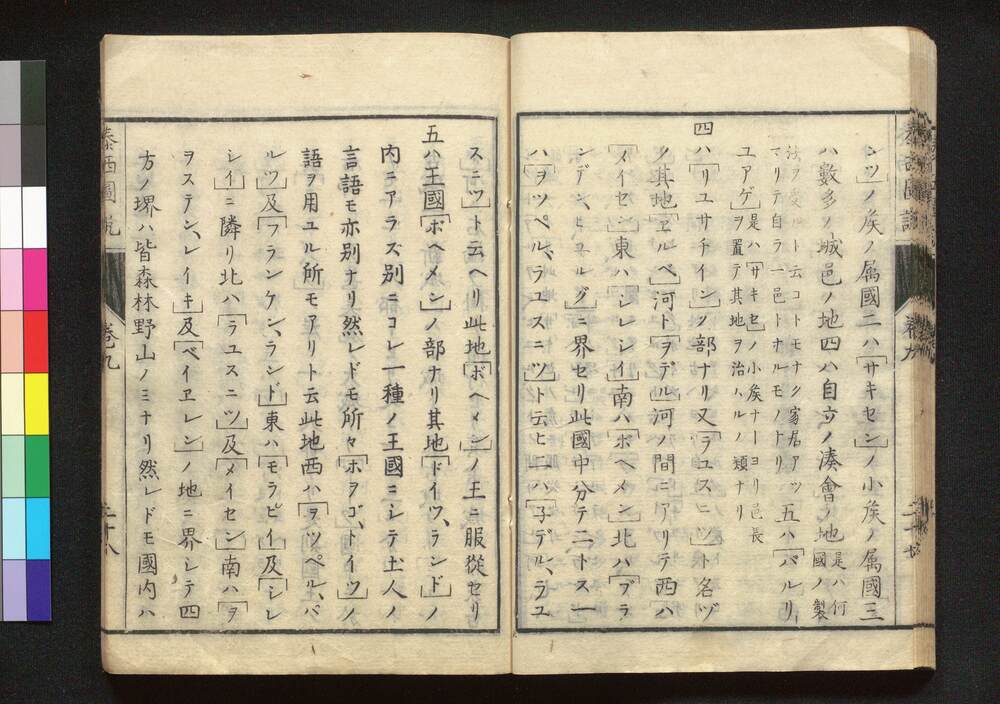 ンツノ矦ノ属國二ハ「サキセン」ノ小矦ノ属國三
ハ數多ノ城邑ノ地四ハ自立ノ湊會ノ地是ハ何國ノ製
法ヲ受ルト云コトモナク家居アツ
マリテ自ラ一邑トナルモノナリ五ハ「バルリ
ユアゲ」ヲ置テ其地ヲ治ハルノ類ナリ
是ハ「サキセ」ノ小矦ナーヨリ邑長
四ハ「リユサチイン」ノ部ナリ又「ラユスニツ」ト名ヅ
ク其地「ヱルベ」河ト「ヲデル」河ノ間ニアリテ西ハ
「メイセン」東ハ「シレシイ」南ハ「ボヘメン」北ハ「ブラ
ンデン、ビユルグ」ニ界セリ此國中分テ二トス一
ハ「ヲツペル、ラユスニツ」ト云ヒ二ハ「子デル、ラユ
泰西圖説
卷九
スニツ」ト云ヘリ此地「ボヘメン」ノ王ニ服從セリ
五ハ王國「ボヘメン」ノ部ナリ其地「ドイツ、ランド」ノ
内ニアラズ別ニコレ一種ノ王國ニシテ土人ノ
言語モ亦別ナリ然レドモ所々「ホヲゴ、ドイツ」ノ
語ヲ用ユル所モアリト云此地西ハ「ヲツペル、パ
ルツ」及「フランケン、ランド」東ハ「モラビイ」及「シレ
シイ」ニ隣リ北ハ「ラユスニツ」及「メイセン」南ハ「ヲ
ヲステン、レイキ」及「ベイヱレン」ノ地ニ界シテ四
方ノ堺ハ皆森林野山ノミナリ然レドモ國内ハ
泰西圖説
卷九
二十八